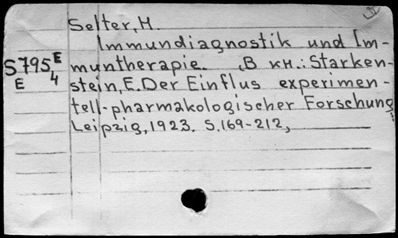 Selter, H.
Immundiagnostik und Im-
muntherapie. В кн.: Starken-
stein, E. Der Einflus experimen-
tell-pharmakologischer Forschung
Leipzig, 1923. S. 169-212,
S795 E
E 4